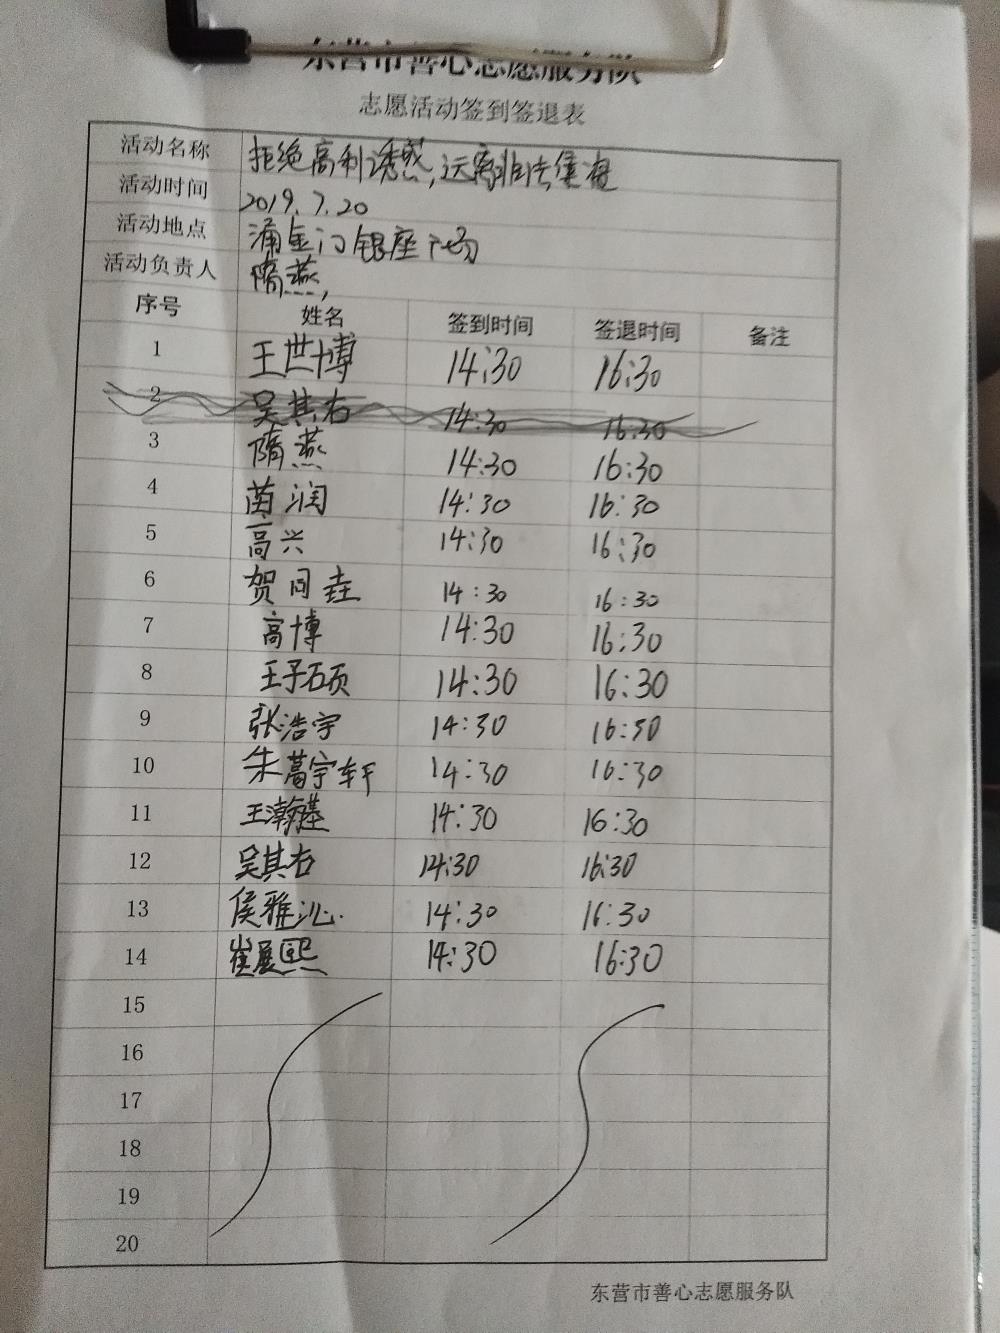 东营市善心志愿服务队
志愿活动签到签退表
活动名称 拒绝高利诱惑,远离非法集资
活动时间 2019.7.20
活动地点 涌金门银座广场
活动负责人 隋燕,
序号 姓名 签到时间 签退时间 备注
1 王世博 14:30 16:30
2 吴其右 14:30 16:30
3 隋燕 14:30 16:30
4 苗润 14:30 16:30
5 高兴 14:30 16:30
6 贺同垚 14:30 16:30
7 高博 14:30 16:30
8 王子硕 14:30 16:30
9 张浩宇 14:30 16:30
10 朱宇轩 14:30 16:30
11 王瀚 14:30 16:30
12 吴其右 14:30 16:30
13 侯雅沁. 14:30 16:30
14 崔展熙 14:30 16:30
15
16
17
18
19
20
东营市善心志愿服务队